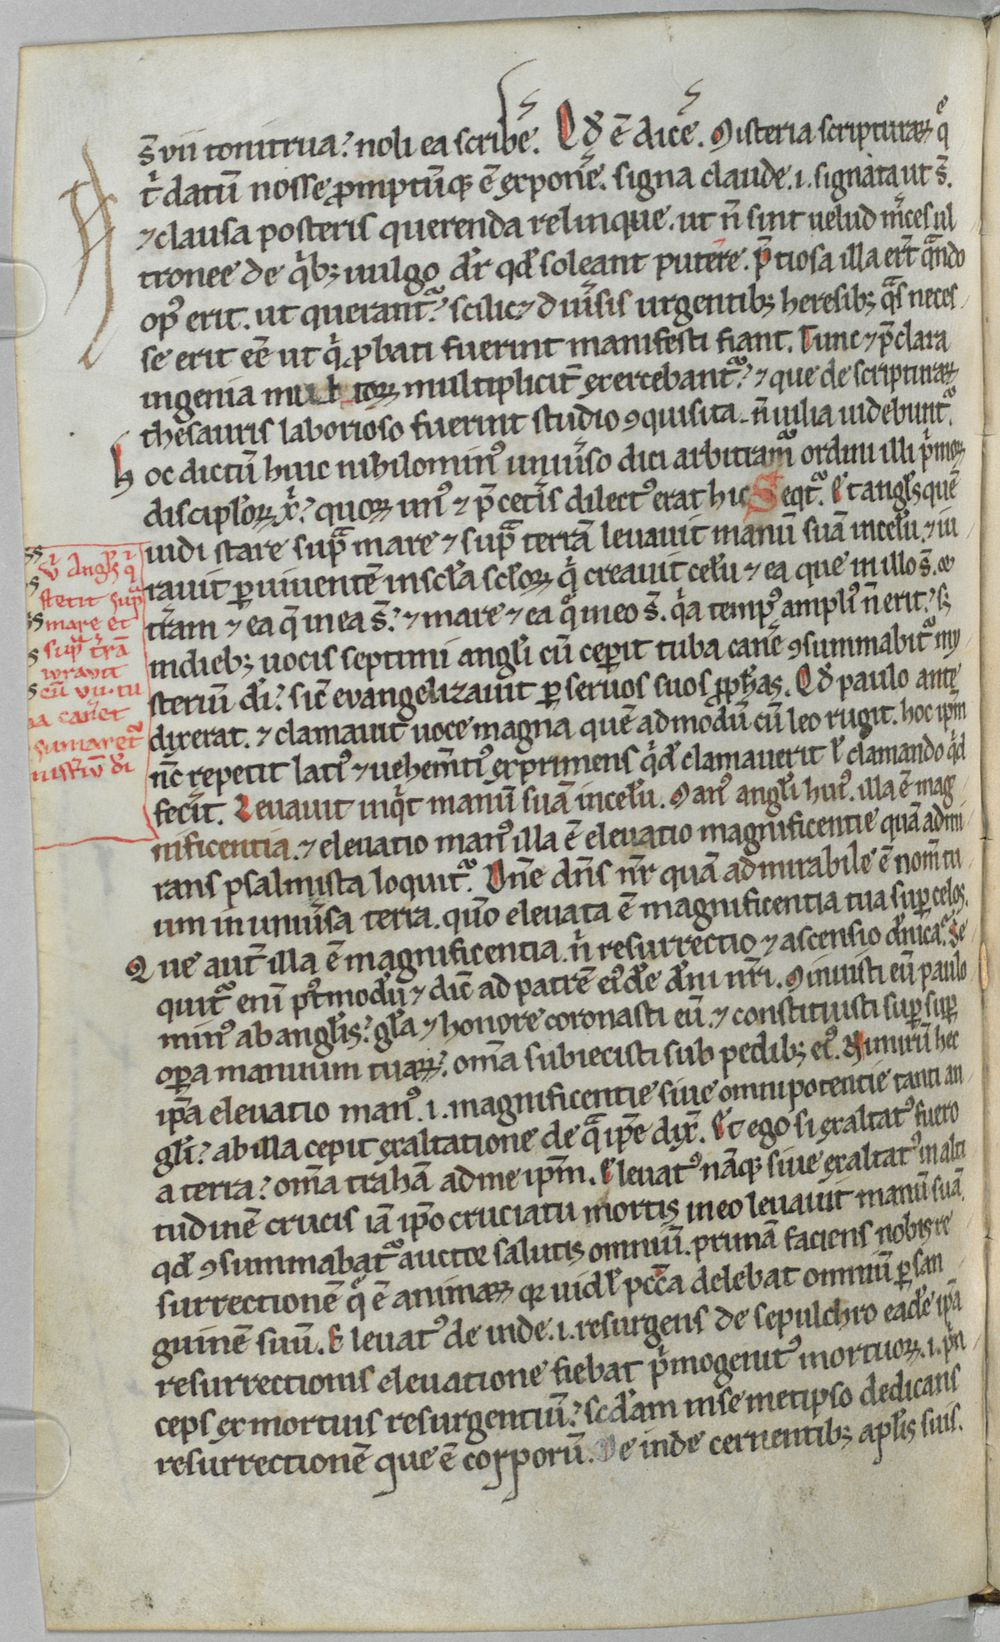 s̄ vii tonitrua? noli ea scribe͂. Qd̄ ē dice͂. Misteria scripturaꝝ qͤ
t͛ datū nosse promptūq; ē expone͂. signa claude .i. signata ut s̄.
⁊ clausa posteris querenda relinque. ut n̄ sint uelud m͛ces ul
tronee de qͥb; uulgo dr̄ qd̄ soleant putere. p̄tiosa illa er̄t qᷓndo
op᷒ erit. ut querantᷣ? scilic⁊ diu͛sis urgentib; heresib; qᷓs neces
se erit ēē ut qͥ ꝓbati fuerint manifesti fiant. Tunc ⁊ p̄clara
ingenia multoꝝ multiplicit͛ exercebantᷣ? ⁊ que de scripturaꝝ
thesauris laborioso fuerint studio ꝯquisita. n̄ uilia uidebuntᷣ.
hoc dictū huic nihilomin᷒ uniu͛so dici arbitramᷣ ordini illi pͥmoꝝ
discipl̄oꝝ xp̄i? quoꝝ un᷒ ⁊ p̄ cet͛is dilect᷒ erat hic. Seqtᷣ. Et angl̄s quē
uidi stare supᷓ mare ⁊ supᷓ terrā leuauit manū suā in cel̄u. ⁊ iu
rauit ꝑ uiuentē in scl̄a scl̄oꝝ qͥ creauit cel̄u ⁊ ea que in illo s̄. ⁊
t͛ram ⁊ ea q̄ in ea s̄? ⁊ mare ⁊ ea qͤ in eo s̄. qͥa temp᷒ ampli᷒ n̄ erit? s;
in dieb; uocis septimi angl̄i cū ceꝑit tuba cane͂ ꝯsummabitᷣ my
steriū dī? sic̄ euangelizauit ꝑ seruos suos ꝓphas. Qd̄ paulo ante
dixerat. ⁊ clamauit uoce magna quē ad modū cū leo rugit. hoc ipm̄
nc̄ repetit lati᷒ ⁊ uehem̄ti᷒ exprimens qͥd clamauerit ł clamando qͥd
fec͛it. Leuauit inqͥt manū suā in cel̄u. Man᷒ angl̄i hui᷒. illa ē mag
nificentia. ⁊ eleuatio man᷒ illa ē eleuatio magnificentie quā admi
rans psalmista loquitᷣ. Dn̄e dn̄s nr̄ quā admirabile ē nom̄ tu
um in uniu͛sa terra. qm̄o eleuata ē magnificentia tua suꝑ celos.
Que aut̄ illa ē magnificentia. n͛ resurrectio ⁊ ascensio dn̄ica. Se
quitᷣ eni pt᷒modū ⁊ dic̄ ad patrē ei᷒dē dn̄i nr̄i. Minuisti eū paulo
min᷒ ab angl̄is? gl̄a ⁊ honore coronasti eū. ⁊ constituisti suꝑ suꝑ
oꝑa manuum tuaꝝ? om̄a subiecisti sub pedib; ei᷒. Nimirū hec
ip̄a eleuatio man᷒ .i. magnificentie siue omnipotentie tanti an
gl̄i? ab illa cepit exaltatione de qᷓ ip̄e dix̄. Et ego si exaltat᷒ fuero
a terra? om̄a trahā ad me ipm̄. Eleuat᷒ nāq; siue exaltat᷒ in alti
tudinē crucis iā ip̄o cruciatu mortis in eo leuauit manū suā
qd̄ ꝯsummabatᷣ auctor salutis omniū. primā faciens nobis re
surrectionē qͤ ē animaꝝ qꝛ uidel̄ pcc̄a delebat omniū ꝑ san
guinē suū. Eleuat᷒ de inde .i. resurgens de sepulchro eadē ip̄a
resurrectionis eleuatione fiebat pͥmogenit᷒ mortuoꝝ .i. pͥn
ceps ex mortuis resurgentiū? sc̄dam in se met ipso dedicans
resurrectionē que ē corporū. De inde cernentib; apl̄is suis.
angl̄s qͥ
stetit supᷓ
mare et
supᷓ t͛rā
iurauit
cū vii. tu
ba can͛et
sumaretᷣ
mist͛iū dī